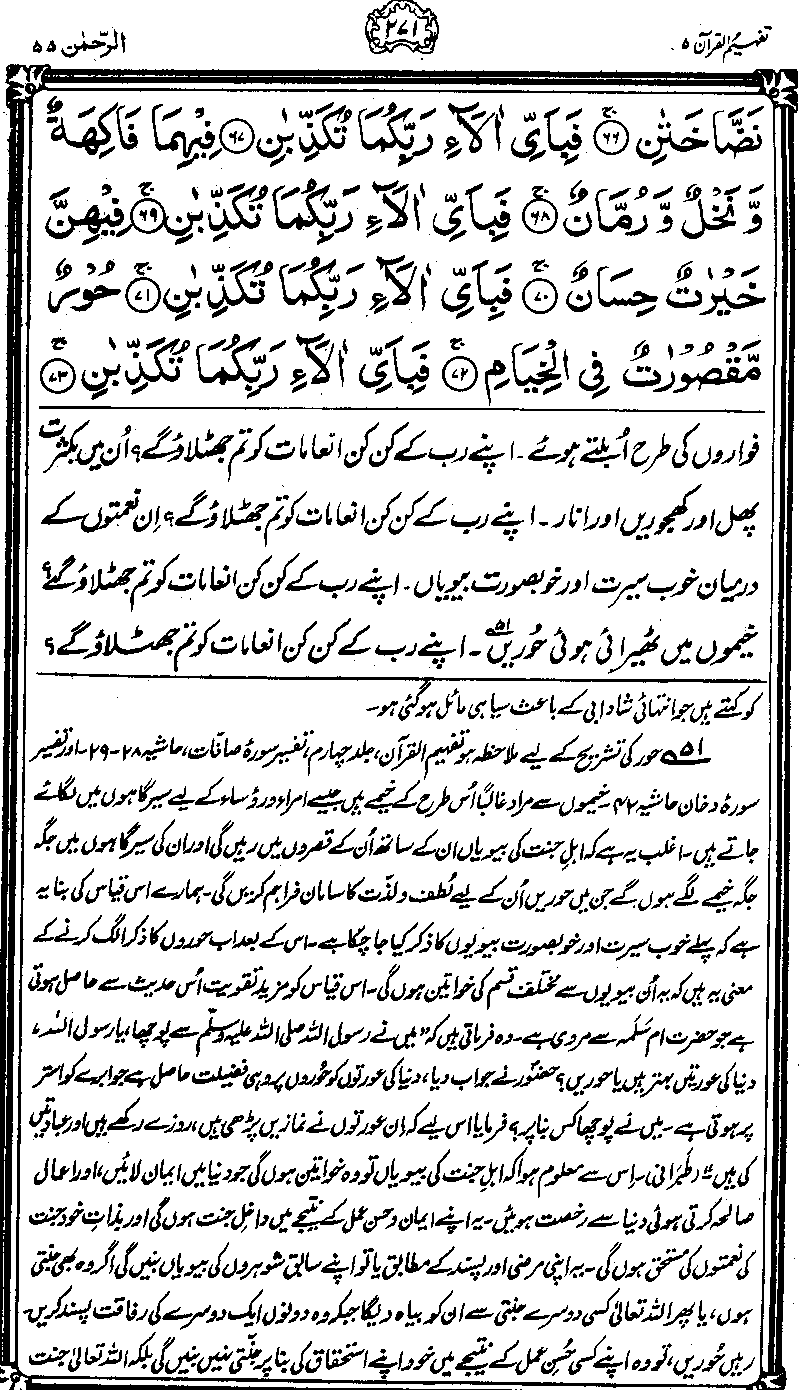 تفہیم القرآن ۵
۲۷۱
الرحمٰن ۵۵
نَضَّاخَتٰنِ ۚ﴿۶۶﴾ فَبِاَيِّ اٰلَآءِ رَبِّكُمَا تُكَذِّبٰنِ ﴿۶۷﴾ فِيْهِمَا فَاكِهَةٌ
وَّ نَخْلٌ وَّ رُمَّانٌ ۚ﴿۶۸﴾ فَبِاَيِّ اٰلَآءِ رَبِّكُمَا تُكَذِّبٰنِ ۚ﴿۶۹﴾ فِيْهِنَّ
خَيْرٰتٌ حِسَانٌ ۚ﴿۷۰﴾ فَبِاَيِّ اٰلَآءِ رَبِّكُمَا تُكَذِّبٰنِ ۚ﴿۷۱﴾ حُوْرٌ
مَّقْصُوْرٰتٌ فِي الْخِيَامِ ۚ﴿۷۲﴾ فَبِاَيِّ اٰلَآءِ رَبِّكُمَا تُكَذِّبٰنِ ۚ﴿۷۳﴾
فواروں کی طرح اُبلتے ہوئے۔ اپنے رب کے کن کن انعامات کو تم جھٹلاؤ گے؟ اُن میں بکثرت
پھل اور کھجوریں اور انار۔ اپنے رب کے کن کن انعامات کو تم جھٹلاؤ گے؟ اِن نعمتوں کے
درمیان خوب سیرت اور خوبصورت بیویاں۔ اپنے رب کے کن کن انعامات کو تم جھٹلاؤ گے؟
خیموں میں ٹھیرائی ہوئی حُوریں۵۱۔ اپنے رب کے کن کن انعامات کو تم جھٹلاؤ گے؟
کو کہتے ہیں جو انتہائی شادابی کے باعث سیاہی مائل ہو گئی ہو۔
۵۱ حور کی تشریح کے لیے ملاحظہ ہو تفہیم القرآن، جلد چہارم، تفسیر سورۂ صافات، حاشیہ ۲۸-۲۹۔ اور تفسیر
سورۂ دخان حاشیہ ۴۲۔ خیموں سے مراد غالباً اُس طرح کے خیمے ہیں جیسے امراء و رؤساء کے لیے سیر گاہوں میں لگائے
جاتے ہیں۔ اغلب یہ ہے کہ اہلِ جنت کی بیویاں ان کے ساتھ اُن کے قصروں میں رہیں گی اور ان کی سیر گاہوں میں جگہ
جگہ خیمے لگے ہوں گے جن میں حوریں اُن کے لیے لُطف و لذّت کا سامان فراہم کریں گی۔ ہمارے اس قیاس کی بنا یہ
ہے کہ پہلے خوب سیرت اور خوبصورت بیویوں کا ذکر کیا جا چکا ہے۔ اس کے بعد اب حوروں کا ذکر الگ کرنے کے
معنی یہ ہیں کہ یہ اُن بیویوں سے مختلف قسم کی خواتین ہوں گی۔ اس قیاس کو مزید تقویت اُس حدیث سے حاصل ہوتی
ہے جو حضرت ام سَلَمہ سے مروی ہے۔ وہ فرماتی ہیں کہ "میں نے رسول اللہ صلی اللہ علیہ وسلم سے پوچھا، یا رسول اللہ،
دنیا کی عورتیں بہتر ہیں یا حوریں؟ حضورؐ نے جواب دیا، دنیا کی عورتوں کو حُوروں پر وہی فضیلت حاصل ہے جو اَبرے کو استر
پر ہوتی ہے۔ میں نے پوچھا کس بنا پر؟ فرمایا اس لیے کہ اِن عورتوں نے نمازیں پڑھی ہیں، روزے رکھے ہیں اور عبادتیں
کی ہیں"۔ (طَبَرانی)۔ اس سے معلوم ہوا کہ اہلِ جنت کی بیویاں تو وہ خواتین ہوں گی جو دنیا میں ایمان لائیں، اور اعمال
صالحہ کرتی ہوئی دنیا سے رخصت ہوئیں۔ یہ اپنے ایمان و حسن عمل کے نتیجے میں داخلِ جنت ہوں گی اور بذاتِ خود جنت
کی نعمتوں کی مستحق ہوں گی۔ یہ اپنی مرضی اور پسند کے مطابق یا تو اپنے سابق شوہروں کی بیویاں بنیں گی اگر وہ بھی جنتی
ہوں، یا پھر اللہ تعالیٰ کسی دوسرے جنتی سے ان کو بیاہ دیگا جبکہ وہ دونوں ایک دوسرے کی رفاقت پسند کریں۔
رہیں حُوریں، تو وہ اپنے کسی حُسنِ عمل کے نتیجے میں خود اپنے استحقاق کی بنا پر جنّتی نہیں بنیں گی بلکہ اللہ تعالیٰ جنت